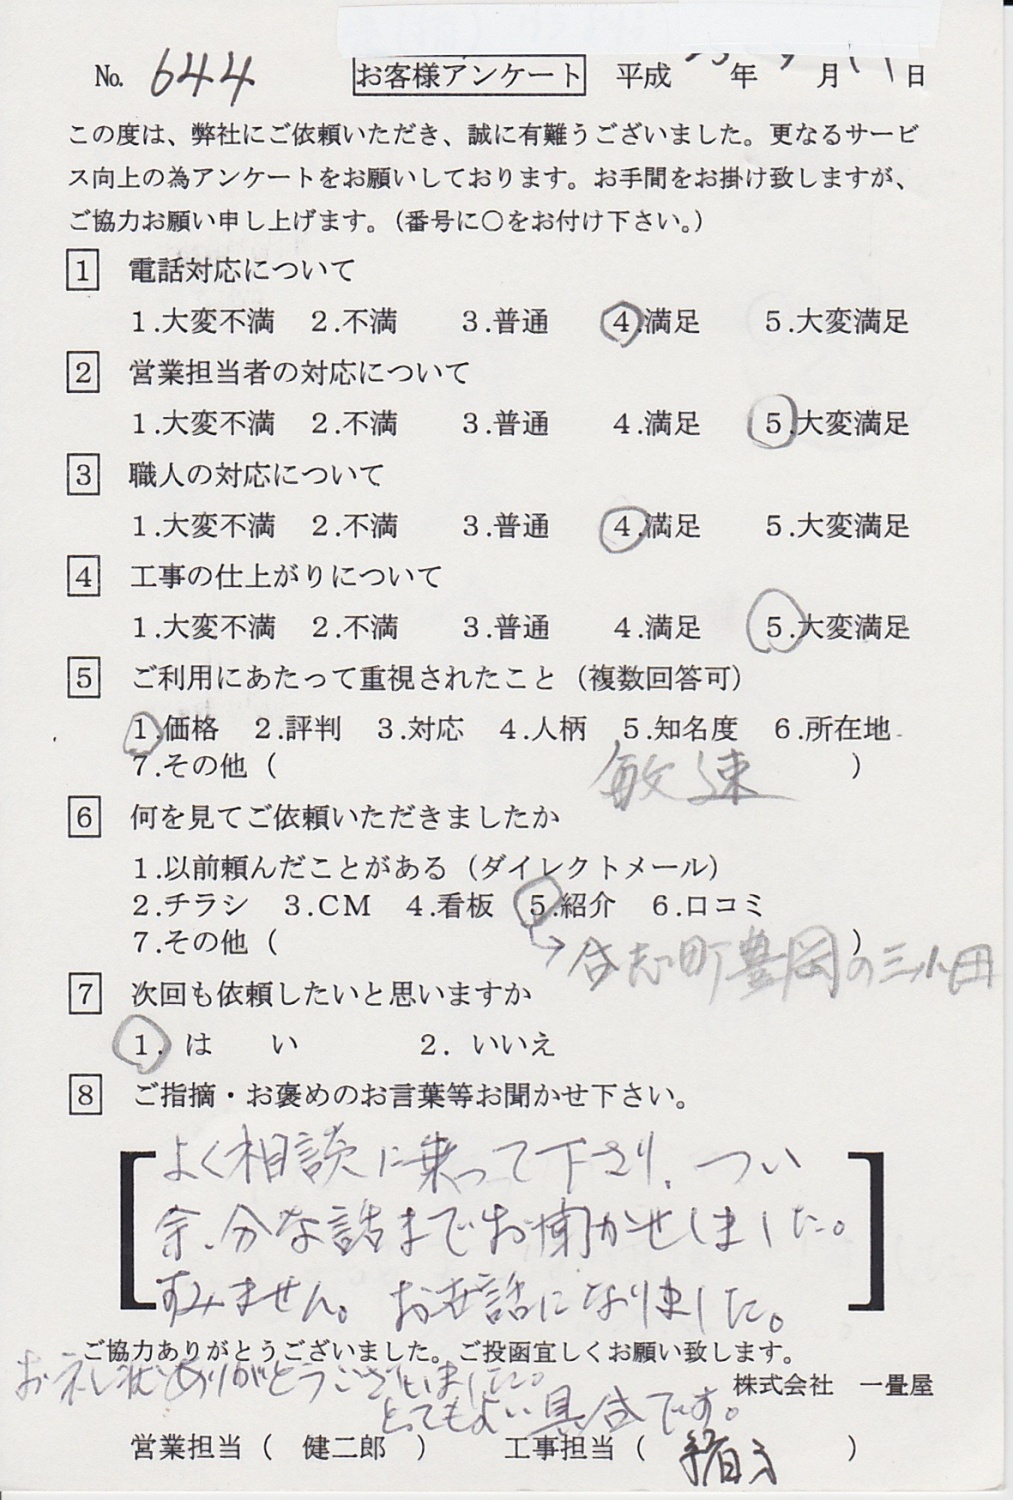 No. 644 お客様アンケート 平成 年 月 日
この度は、弊社にご依頼いただき、誠に有難うございました。更なるサービ
ス向上の為アンケートをお願いしております。お手間をお掛け致しますが、
ご協力お願い申し上げます。（番号に〇をお付け下さい。）
1 電話対応について
1.大変不満 2.不満 3.普通 4.満足 5.大変満足
2 営業担当者の対応について
1.大変不満 2.不満 3.普通 4.満足 5.大変満足
3 職人の対応について
1.大変不満 2.不満 3.普通 4.満足 5.大変満足
4 工事の仕上がりについて
1.大変不満 2.不満 3.普通 4.満足 5.大変満足
5 ご利用にあたって重視されたこと（複数回答可）
1.価格 2.評判 3.対応 4.人柄 5.知名度 6.所在地
7.その他（ 敏速 ）
6 何を見てご依頼いただきましたか
1.以前頼んだことがある（ダイレクトメール）
2.チラシ 3.CM 4.看板 5.紹介 6.口コミ
7.その他（ ）
→合志町豊岡の三小田
7 次回も依頼したいと思いますか
1. はい 2. いいえ
8 ご指摘・お褒めのお言葉等お聞かせ下さい。
よく相談に乗って下さり、つい
余分な話までお聞かせしました。
すみません。お世話になりました。
ご協力ありがとうございました。ご投函宜しくお願い致します。
お礼状ありがとうございました。
株式会社 一畳屋
とてもよい具合です。
営業担当（ 健二郎 ） 工事担当（ ）